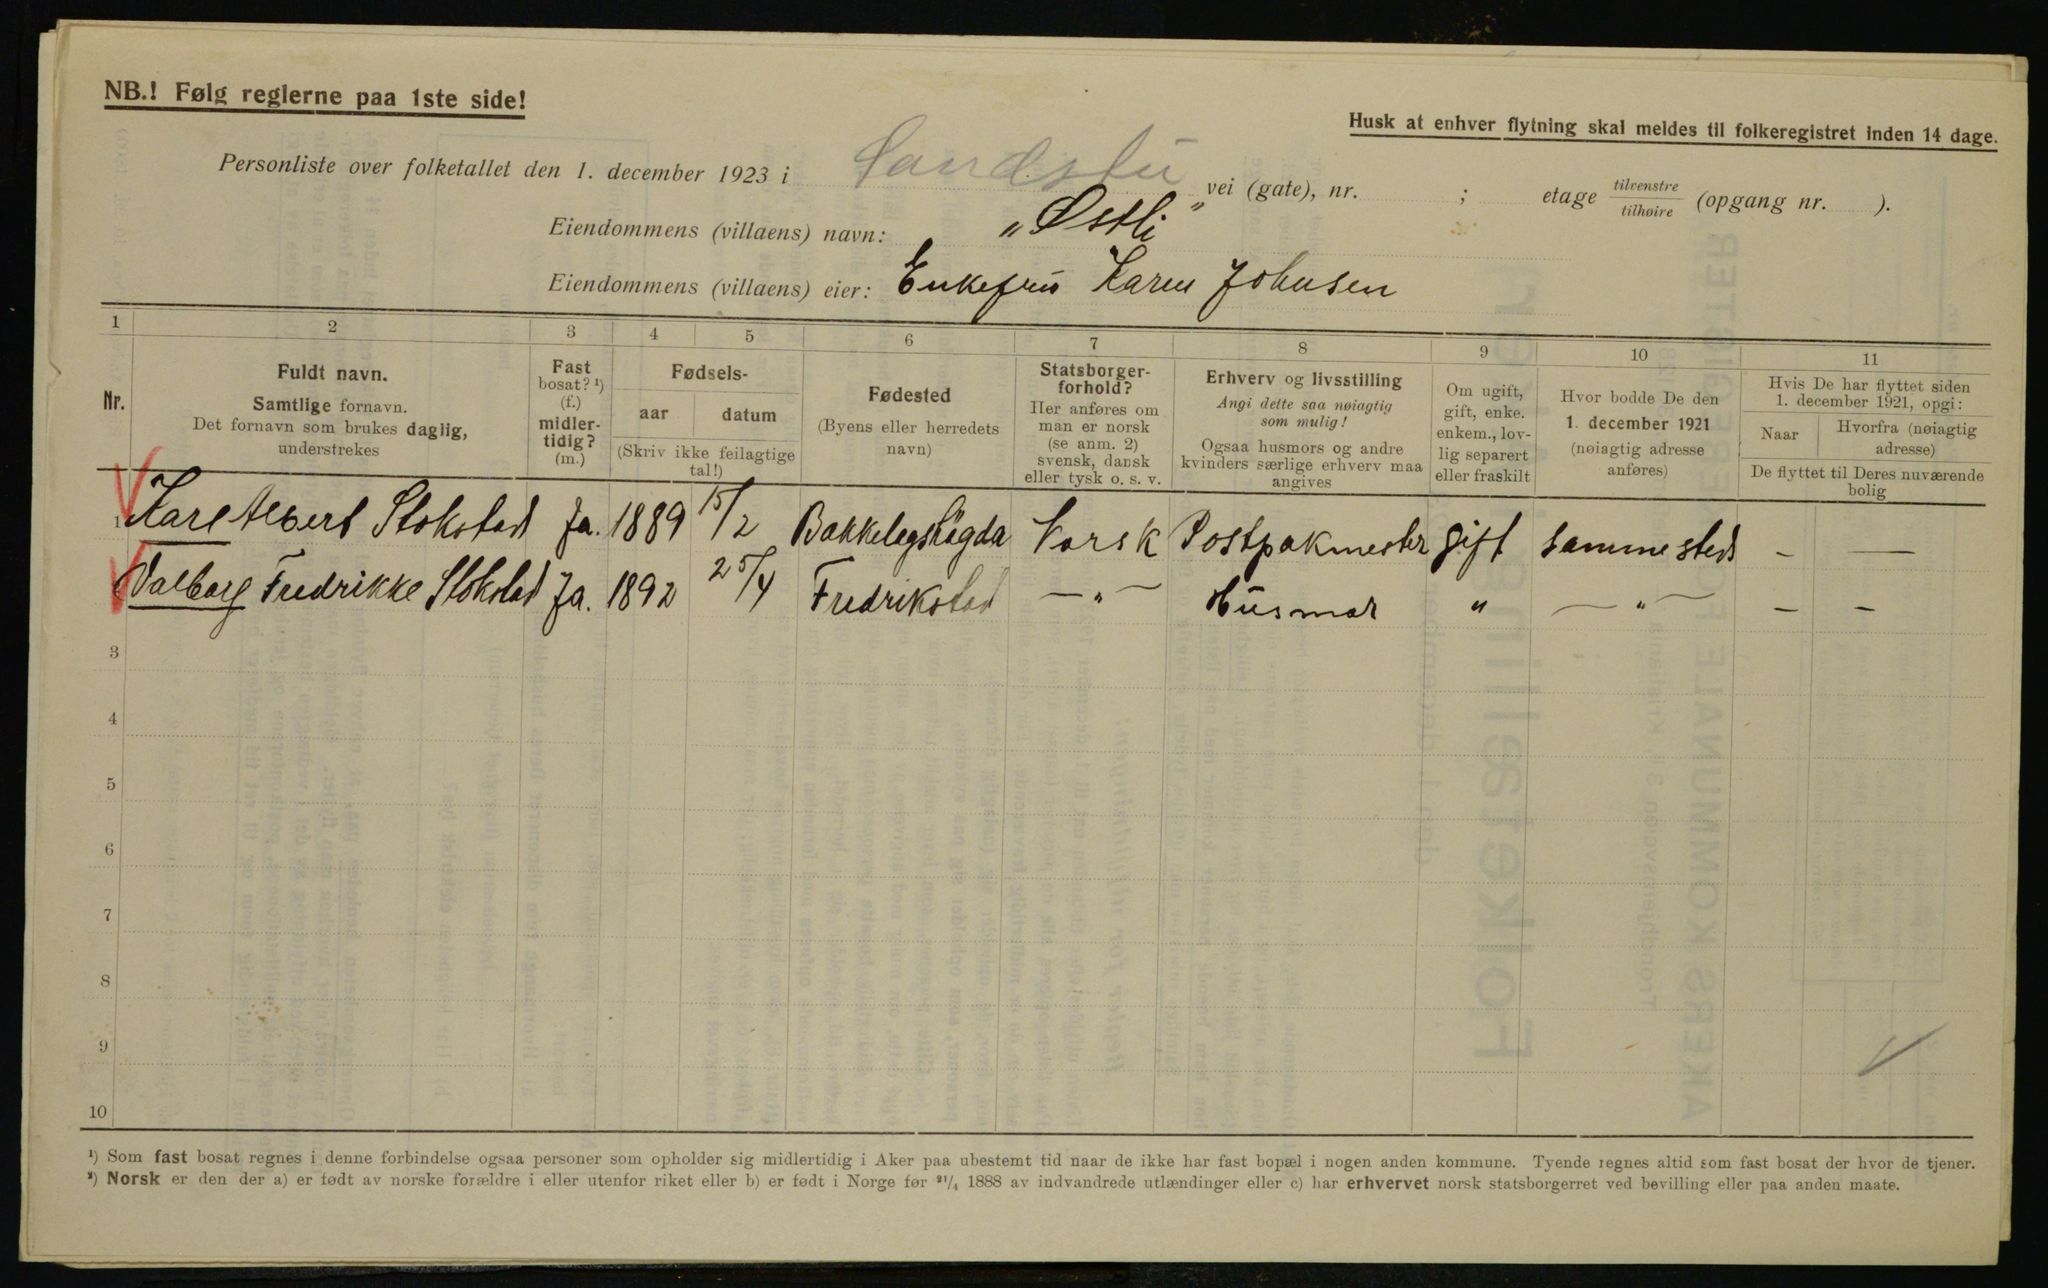 NB.! Følg reglerne paa 1ste side!
Husk at enhver flytning skal meldes til folkeregistret inden 14 dage.
Personliste over folketallet den 1. december 1923 i Sandstu vei (gate), nr. ; etage tilvenstre/tilhøire (opgang nr. ).
Eiendommens (villaens) navn: „Østli"
Eiendommens (villaens) eier: Enkefru Karen Johnsen
1 2 3 4 5 6 7 8 9 10 11
Nr.
Fuldt navn.
Samtlige fornavn.
Det fornavn som brukes daglig,
understrekes
Fast
bosat? ¹)
(f.)
midler-
tidig?
(m.)
Fødsels-
aar datum
(Skriv ikke feilagtige
tal!)
Fødested
(Byens eller herredets
navn)
Statsborger-
forhold?
Her anføres om
man er norsk
(se anm. 2)
svensk, dansk
eller tysk o. s. v.
Erhverv og livsstilling
Angi dette saa nøiagtig
som mulig!
Ogsaa husmors og andre
kvinders særlige erhverv maa
angives
Om ugift,
gift, enke.
enkem., lov-
lig separert
eller fraskilt
Hvor bodde De den
1. december 1921
(nøiagtig adresse
anføres)
Hvis De har flyttet siden
1. december 1921, opgi:
Naar Hvorfra (nøiagtig
adresse)
De flyttet til Deres nuværende
bolig
1 Karl Albert Stokstad Ja. 1889 15/2 Bakkelegshögda Norsk Postpakmester gift sammesteds - —
Valborg Fredrikke Stokstad Ja. 1892 25/4 Fredrikstad — „ — Husmor „ — „ — - -
3
4
5
6
7
8
9
10
¹) Som fast bosat regnes i denne forbindelse ogsaa personer som opholder sig midlertidig i Aker paa ubestemt tid naar de ikke har fast bopæl i nogen anden kommune. Tyende regnes altid som fast bosat der hvor de tjener.
²) Norsk er den der a) er født av norske forældre i eller utenfor riket eller b) er født i Norge før ²¹/₄ 1888 av indvandrede utlændinger eller c) har erhvervet norsk statsborgerret ved bevilling eller paa anden maate.